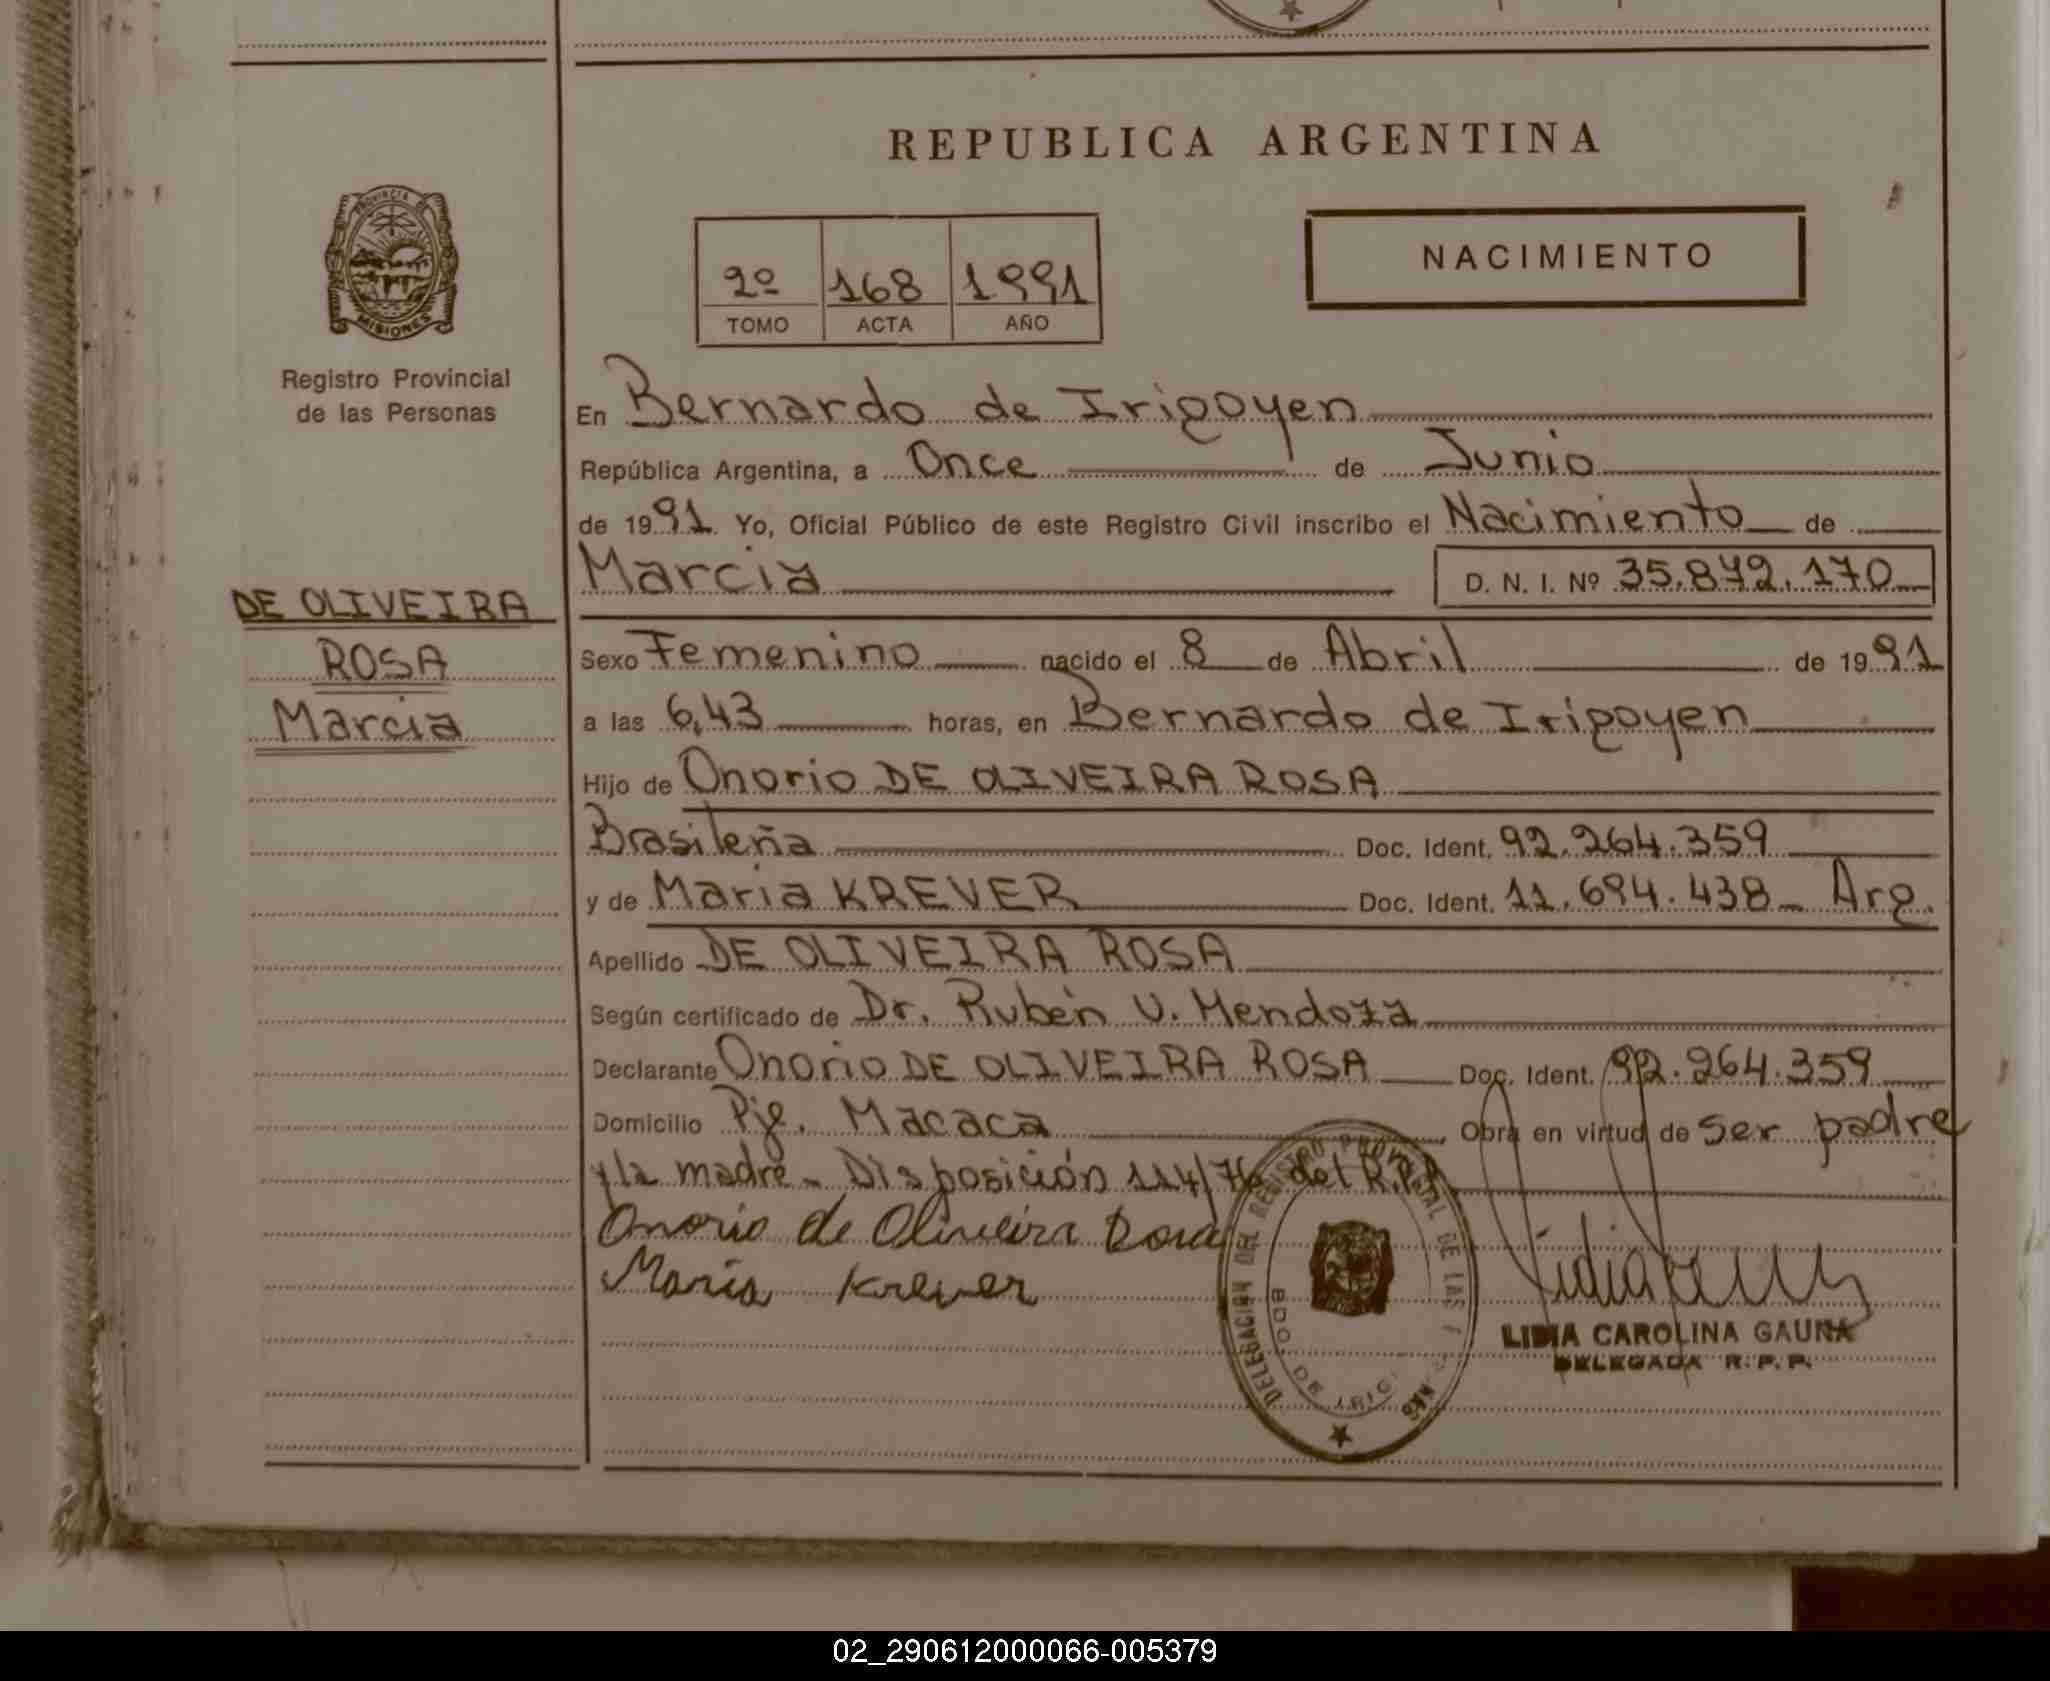 REPUBLICA ARGENTINA
PROVINCIA DE
MISIONES
Registro Provincial
de las Personas
DE OLIVEIRA
ROSA
Marcia
2º 168 1991
TOMO ACTA AÑO
NACIMIENTO
En Bernardo de Irigoyen
República Argentina, a Once de Junio
de 1991 Yo, Oficial Público de este Registro Civil inscribo el Nacimiento de
Marcia D. N. I. Nº 35.872.170
Sexo Femenino nacido el 8 de Abril de 1991
a las 6,43 horas, en Bernardo de Irigoyen
Hijo de Onorio DE OLIVEIRA ROSA
Brasileña Doc. Ident. 92.264.359
y de Maria KREVER Doc. Ident. 11.694.438 Arg.
Apellido DE OLIVEIRA ROSA
Según certificado de Dr. Rubén U. Mendoza
Declarante Onorio DE OLIVEIRA ROSA Doc. Ident. 92.264.359
Domicilio Pje. Macaca Obra en virtud de ser padre
y la madre - Disposición 114/76 del R.P.P.
Onorio de Oliveira Rosa
Maria Krever
DELEGACIÓN DEL REGISTRO PROVINCIAL DE LAS
BDO. DE IRIG
LIDIA CAROLINA GAUNA
DELEGADA R. P. P.
02_290612000066-005379